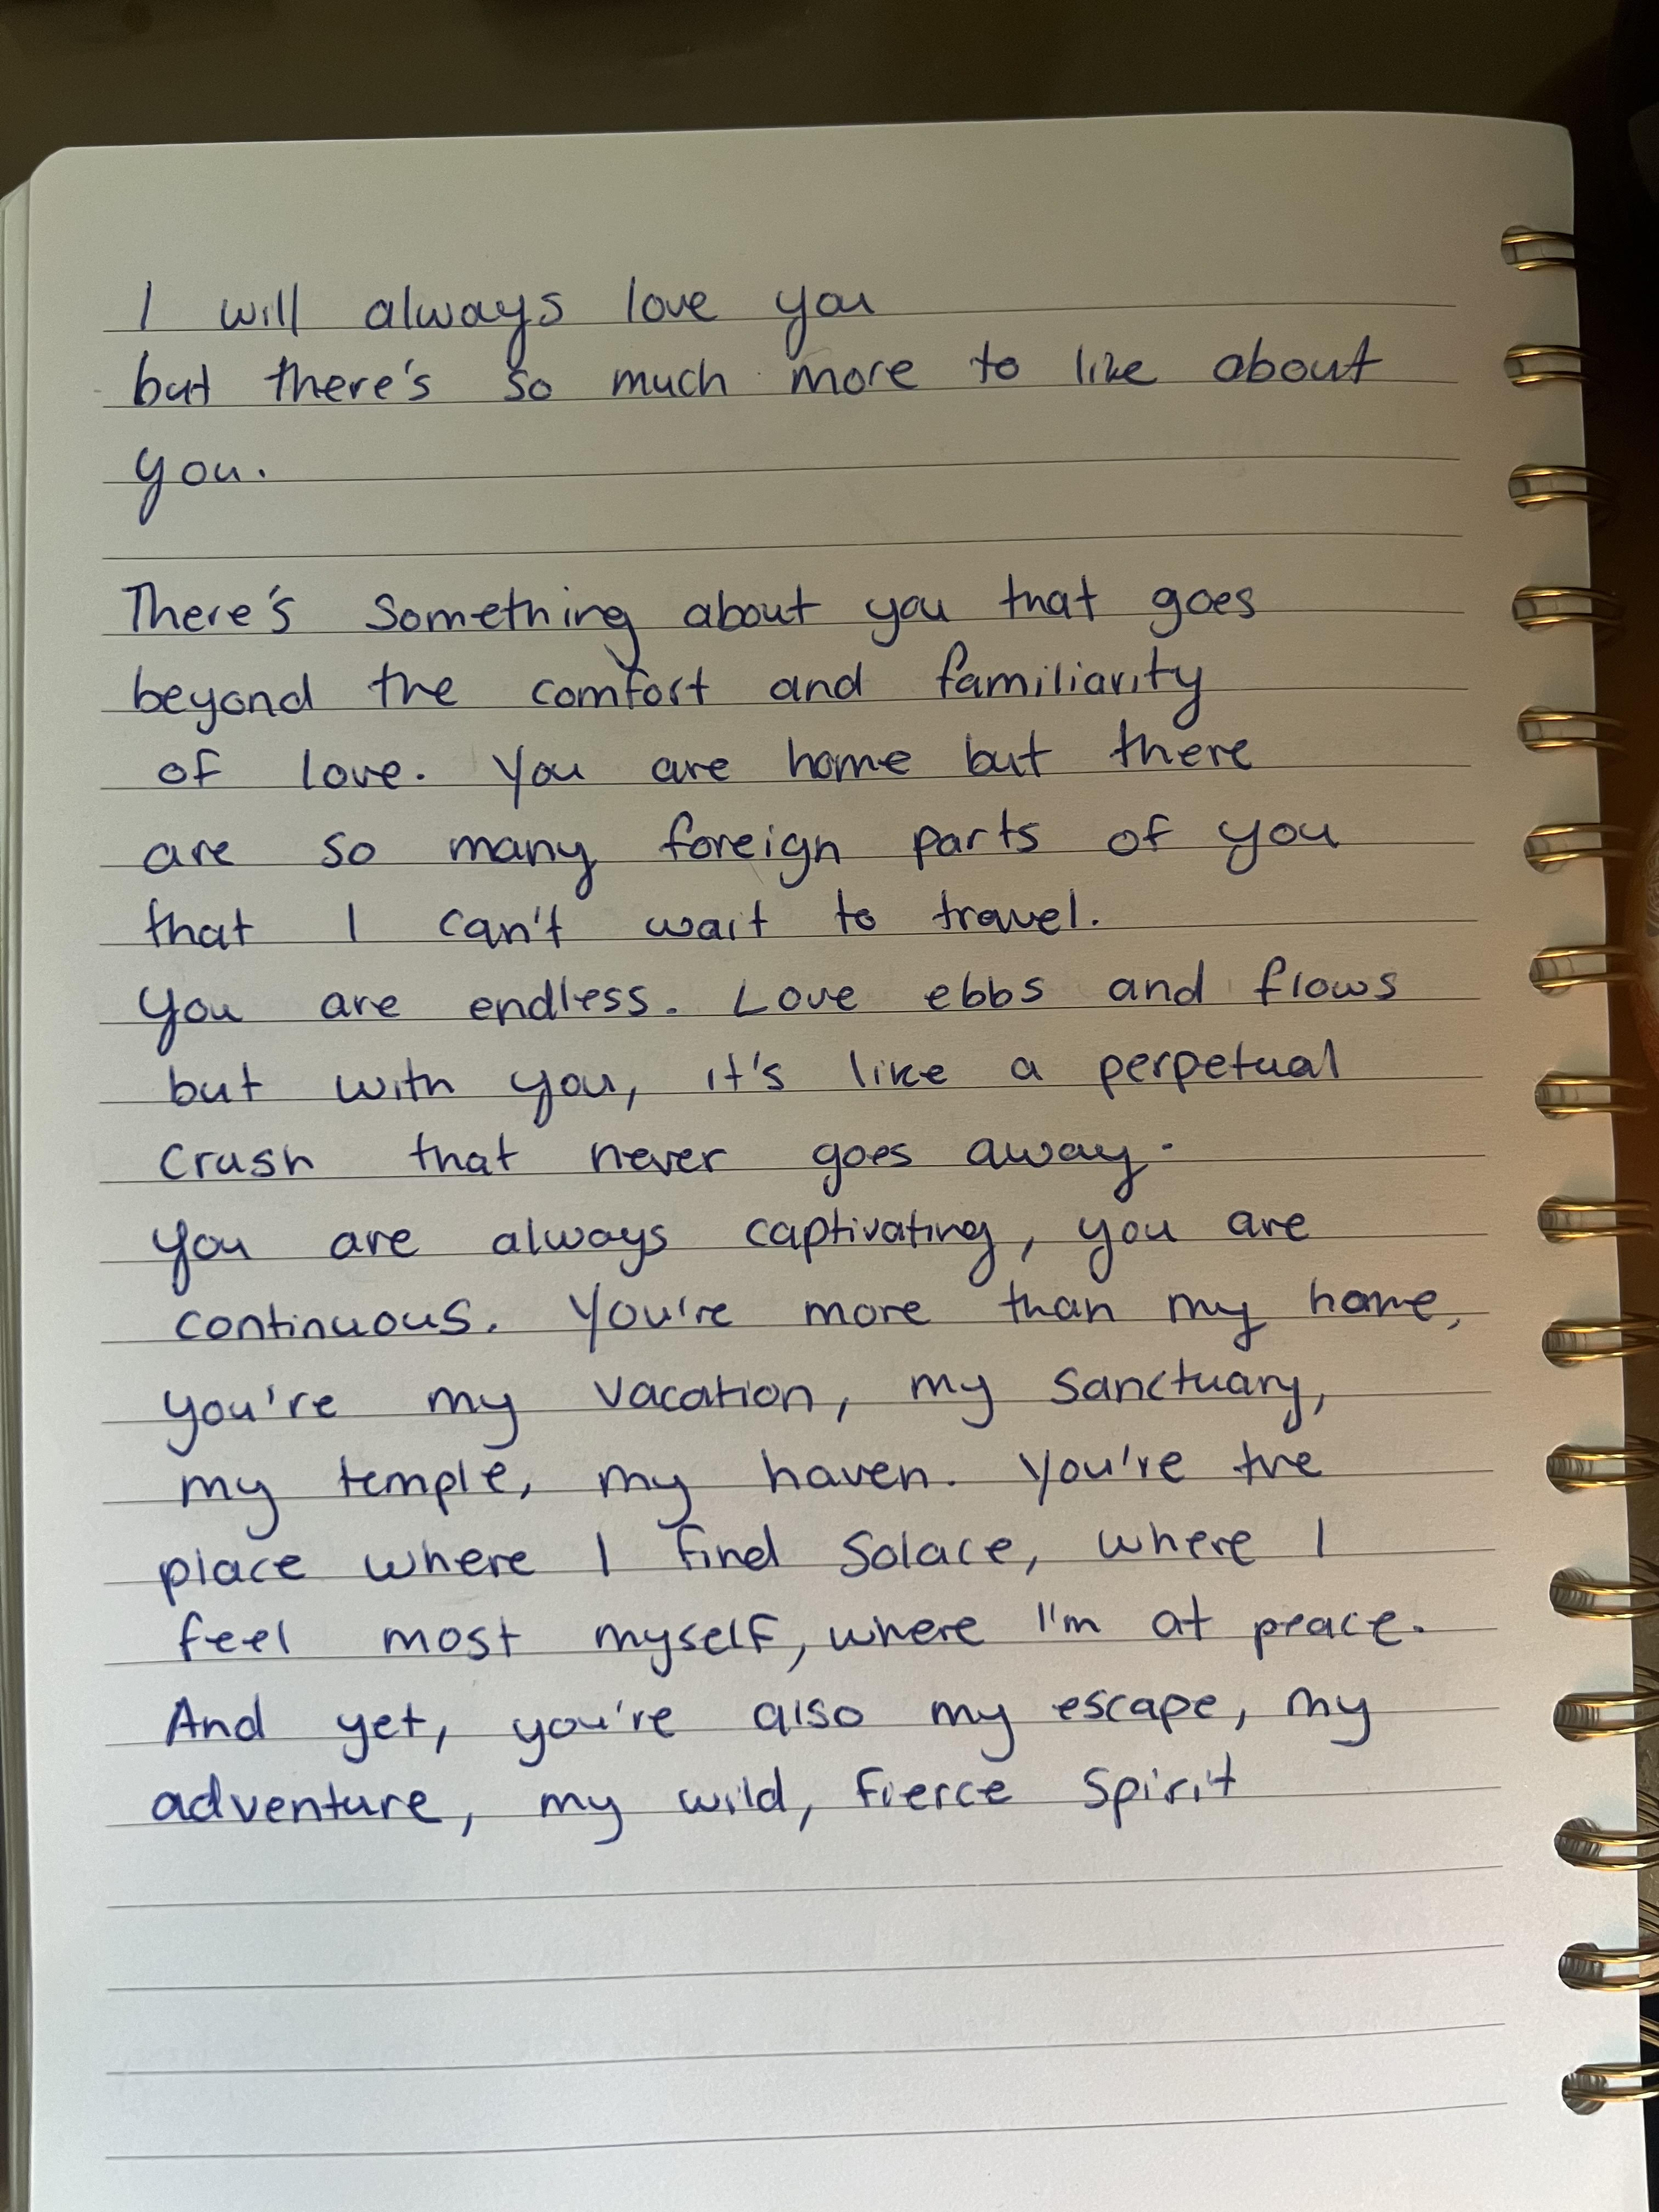 I will always love you
but there's so much more to like about
you.
There's something about you that goes
beyond the comfort and familiarity
of love. You are home but there
are so many foreign parts of you
that I can't wait to travel.
You are endless. Love ebbs and flows
but with you, it's like a perpetual
crush that never goes away.
You are always captivating, you are
continuous. You're more than my home,
you're my vacation, my sanctuary,
my temple, my haven. You're the
place where I find solace, where I
feel most myself, where I'm at peace.
And yet, you're also my escape, my
adventure, my wild, fierce spirit